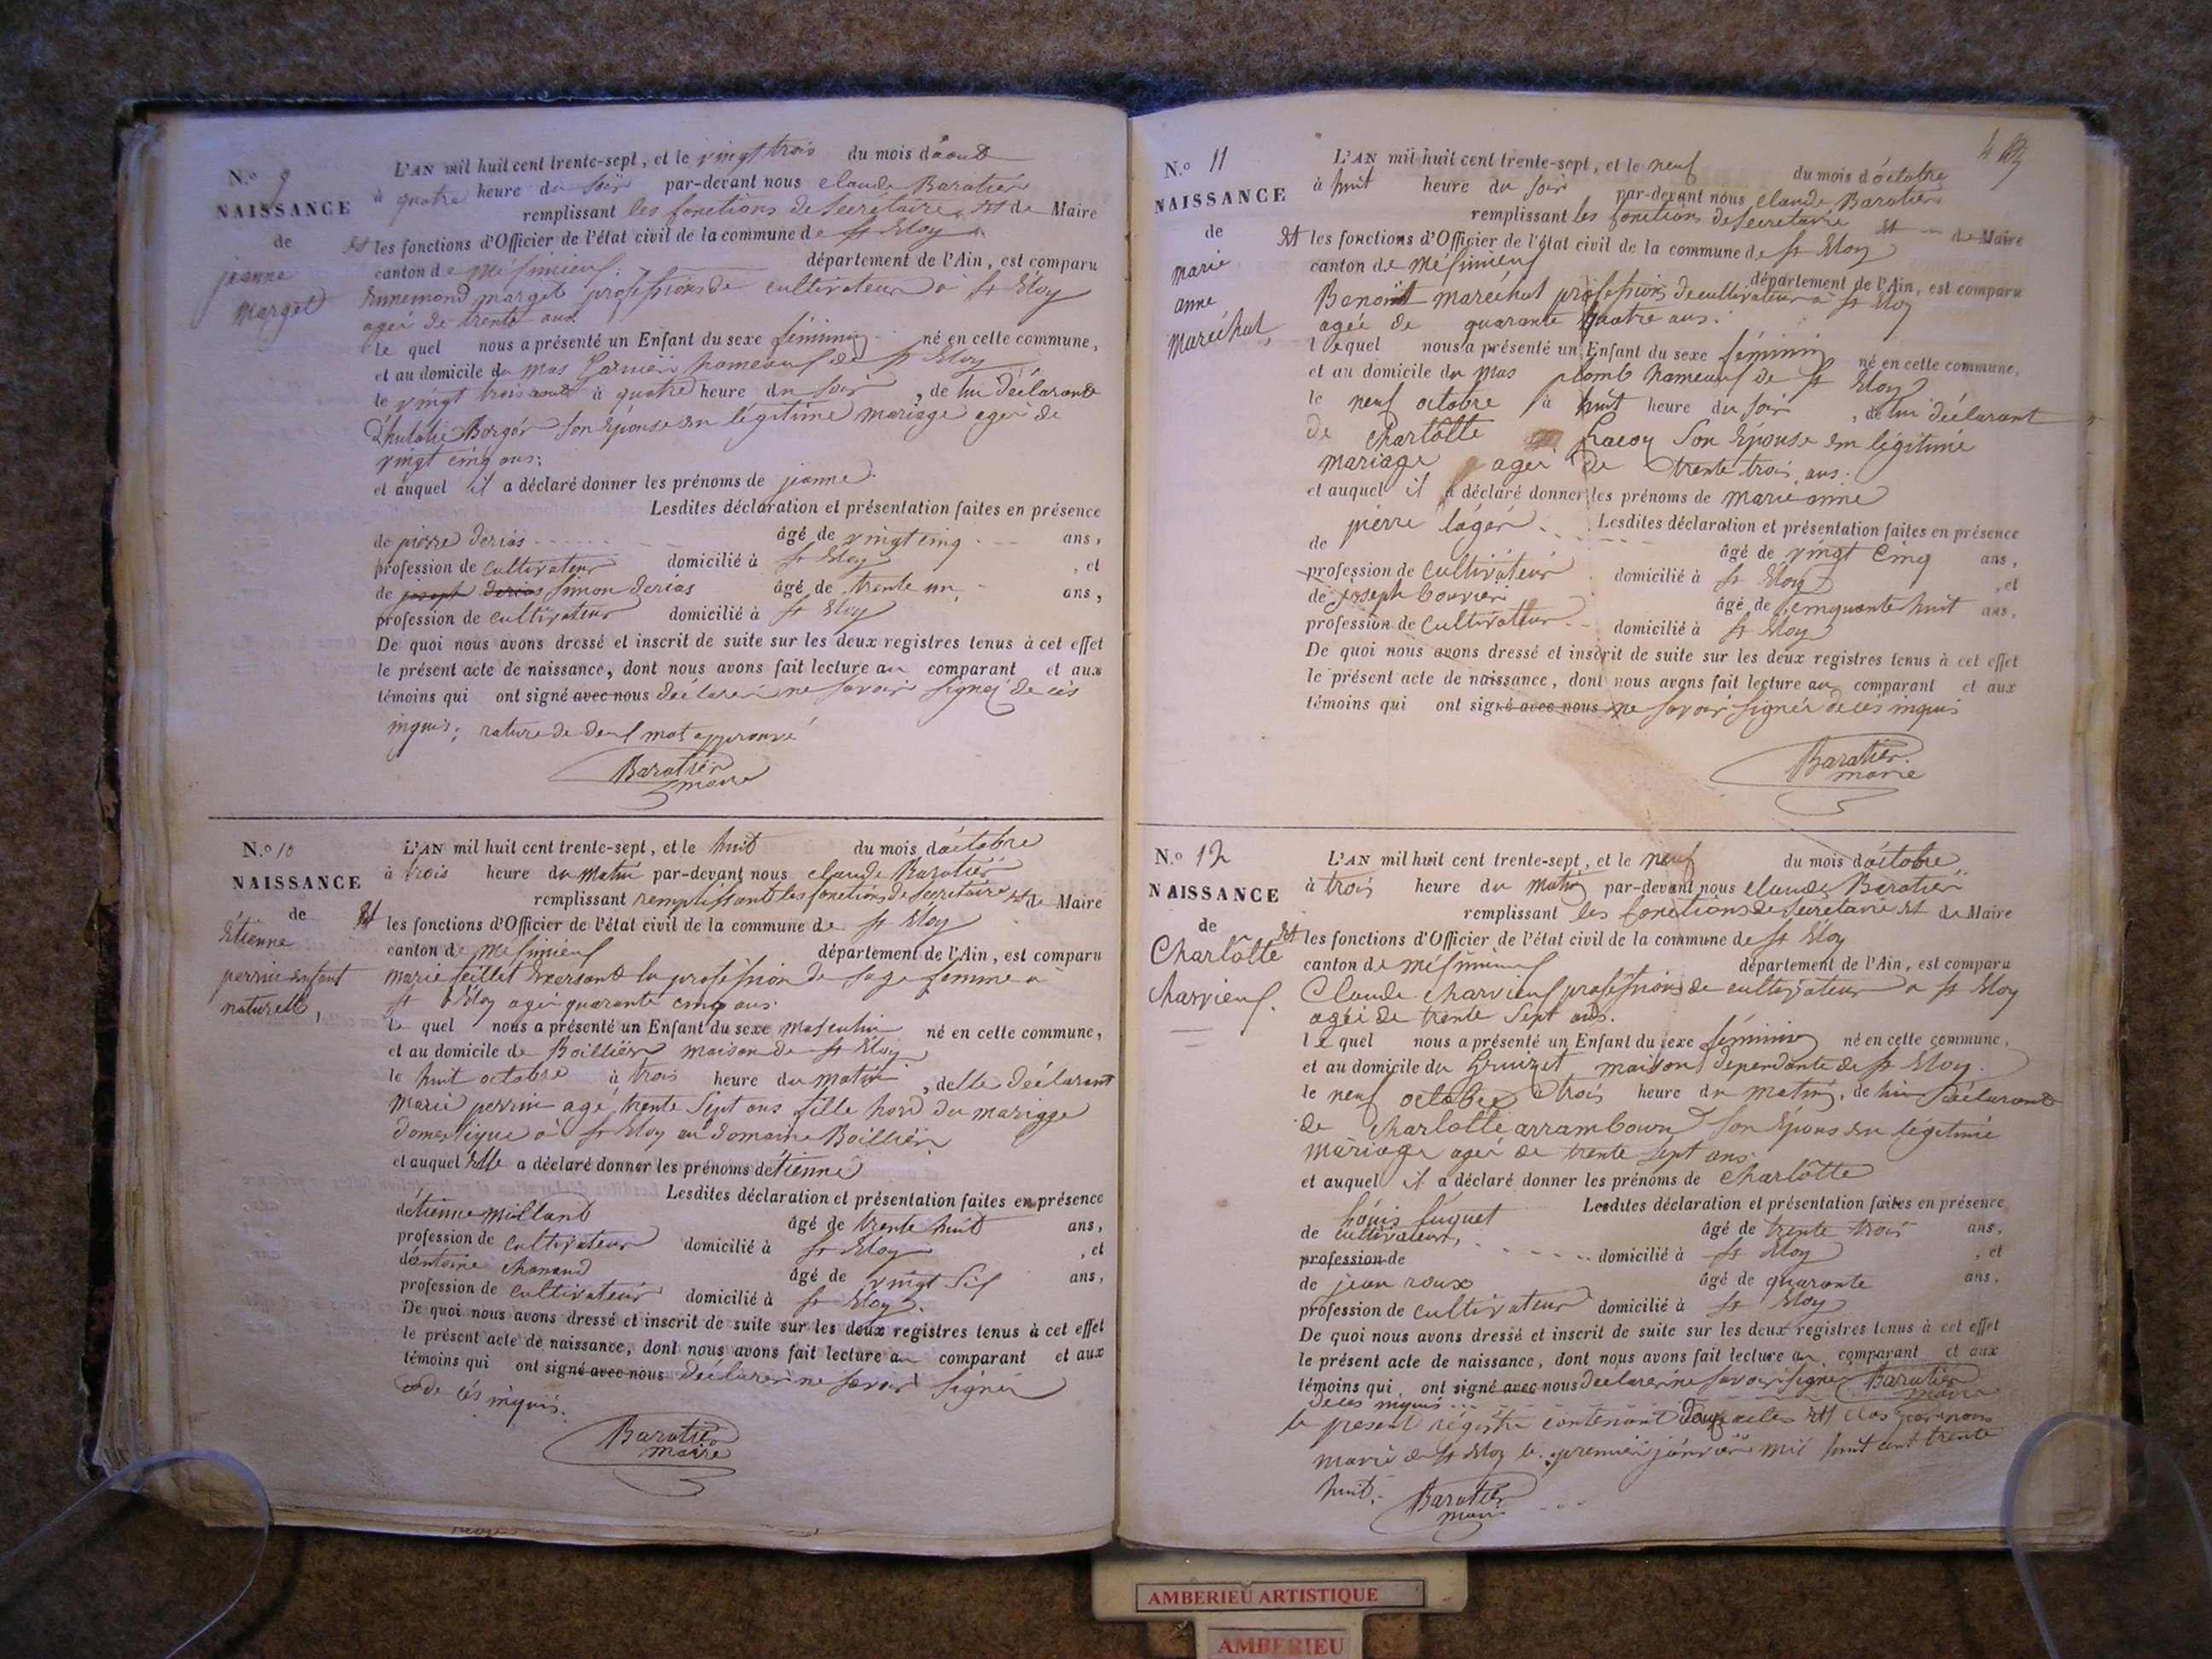 N.º 9
NAISSANCE
de
jeanne
Marget
L'AN mil huit cent trente-sept, et le vingt trois du mois d'aout
à quatre heure du soir par-devant nous claude Baratier
remplissant les fonctions de secretaire et de Maire
et les fonctions d'Officier de l'état civil de la commune de st Eloy
canton de Mésimieux département de l'Ain, est comparu
Ennemond marget profession de cultivateur à st Eloy
ageé de trente ans
le quel nous a présenté un Enfant du sexe féminin né en cette commune,
et au domicile du mas Garnier hameaux de st Eloy
le vingt trois aout à quatre heure du soir, de lui déclarant
Borgér son épouse en légitime mariage ageé de
vingt cinq ans;
et auquel il a déclaré donner les prénoms de jeanne
Lesdites déclaration et présentation faites en présence
de pierre derias âgé de vingt cinq ans,
profession de cultivateur domicilié à st Eloy, et
de joseph derias simon derias âgé de trente un ans,
profession de cultivateur domicilié à st Eloy
De quoi nous avons dressé et inscrit de suite sur les deux registres tenus à cet effet
le présent acte de naissance, dont nous avons fait lecture au comparant et aux
témoins qui ont signé avec nous déclarer ne savoir signer de ces
inquis; rature de deux mot approuvé
Baratier
maire
N.º 10
NAISSANCE
de
Etienne
perrin enfant
naturelle,
L'AN mil huit cent trente-sept, et le huit du mois d'octobre
à trois heure du matin par-devant nous claude Baratier
remplissant remplissant les fonctions de secretaire et de Maire
et les fonctions d'Officier de l'état civil de la commune de st Eloy
canton de mésimieux département de l'Ain, est comparu
marie feillet Exersant la profession de sage femme à
st Eloy ageé quarante cinq ans
le quel nous a présenté un Enfant du sexe masculin né en cette commune,
et au domicile de Boillier maison de st Eloy
le huit octobre à trois heure du matin, delle déclarant
marie perrin agé trente sept ans fille hord du mariage
domestique à st Eloy au domaine Boillier
et auquel Elle a déclaré donner les prénoms détienne
Lesdites déclaration et présentation faites en présence
détienne milland âgé de trente huit ans,
profession de cultivateur domicilié à st Eloy, et
dantoine chanand âgé de vingt six ans,
profession de cultivateur domicilié à st Eloy
De quoi nous avons dressé et inscrit de suite sur les deux registres tenus à cet effet
le présent acte de naissance, dont nous avons fait lecture au comparant et aux
témoins qui ont signé avec nous déclarer ne savoir signer
de ces inquis.
Baratier
maire
N.º 11
NAISSANCE
de
marie
anne
maréchal,
L'AN mil huit cent trente-sept, et le neuf du mois d'octobre
à huit heure du soir par-devant nous claude Baratier
remplissant les fonctions de secretaire et de Maire
et les fonctions d'Officier de l'état civil de la commune de st Eloy
canton de mésimieux département de l'Ain, est comparu
Benoit maréchal profession de cultivateur à st Eloy
ageé de quarante quatre ans.
lequel nous a présenté un Enfant du sexe féminin né en cette commune,
et au domicile du mas plomb hameaux de st Eloy
le neuf octobre à huit heure du soir, de lui déclarant
de charlôtte Lacoy son épouse em légitime
mariage ageé de trente trois ans.
et auquel il a déclaré donner les prénoms de marie anne
Lesdites déclaration et présentation faites en présence
de pierre lágér âgé de vingt cinq ans,
profession de cultivateur domicilié à st Eloy, et
de joseph bouvier âgé de cinquante huit ans,
profession de cultivateur domicilié à st Eloy
De quoi nous avons dressé et inscrit de suite sur les deux registres tenus à cet effet
le présent acte de naissance, dont nous avons fait lecture au comparant et aux
témoins qui ont signé avec nous ne savoir signér de ces inquis
Baratier
maire
N.º 12
NAISSANCE
de
Charlôtte
charvieux.
L'AN mil huit cent trente-sept, et le neuf du mois d'octobre
à trois heure du matin par-devant nous claude Baratier
remplissant les fonctions de secretaire et de Maire
et les fonctions d'Officier de l'état civil de la commune de st Eloy
canton de mésimieux département de l'Ain, est comparu
Claude charvieux profession de cultivateur à st Eloy
ageé de trente sept ans.
le quel nous a présenté un Enfant du sexe féminin né en cette commune,
et au domicile du Gruizet maison dependante de st Eloy
le neuf octobre à trois heure du matin, de lui déclarant
de charlotte arrambourd son épous en légitime
mariage ageé de trente sept ans
et auquel il a déclaré donner les prénoms de charlôtte
Lesdites déclaration et présentation faites en présence
de Louis fuquet cultivateur, âgé de trente trois ans,
profession de domicilié à st Eloy, et
de jean roux âgé de quarante ans,
profession de cultivateur domicilié à st Eloy
De quoi nous avons dressé et inscrit de suite sur les deux registres tenus à cet effet
le présent acte de naissance, dont nous avons fait lecture au comparant et aux
témoins qui ont signé avec nous déclarer ne savoir signer Baratier
maire
de ces inquis
le présent régistre contenant douze actes et clos par nous
maire de st Eloy le premier janvier mil huit cent trente
huit.
Baratier
maire
AMBERIEU ARTISTIQUE
AMBERIEU